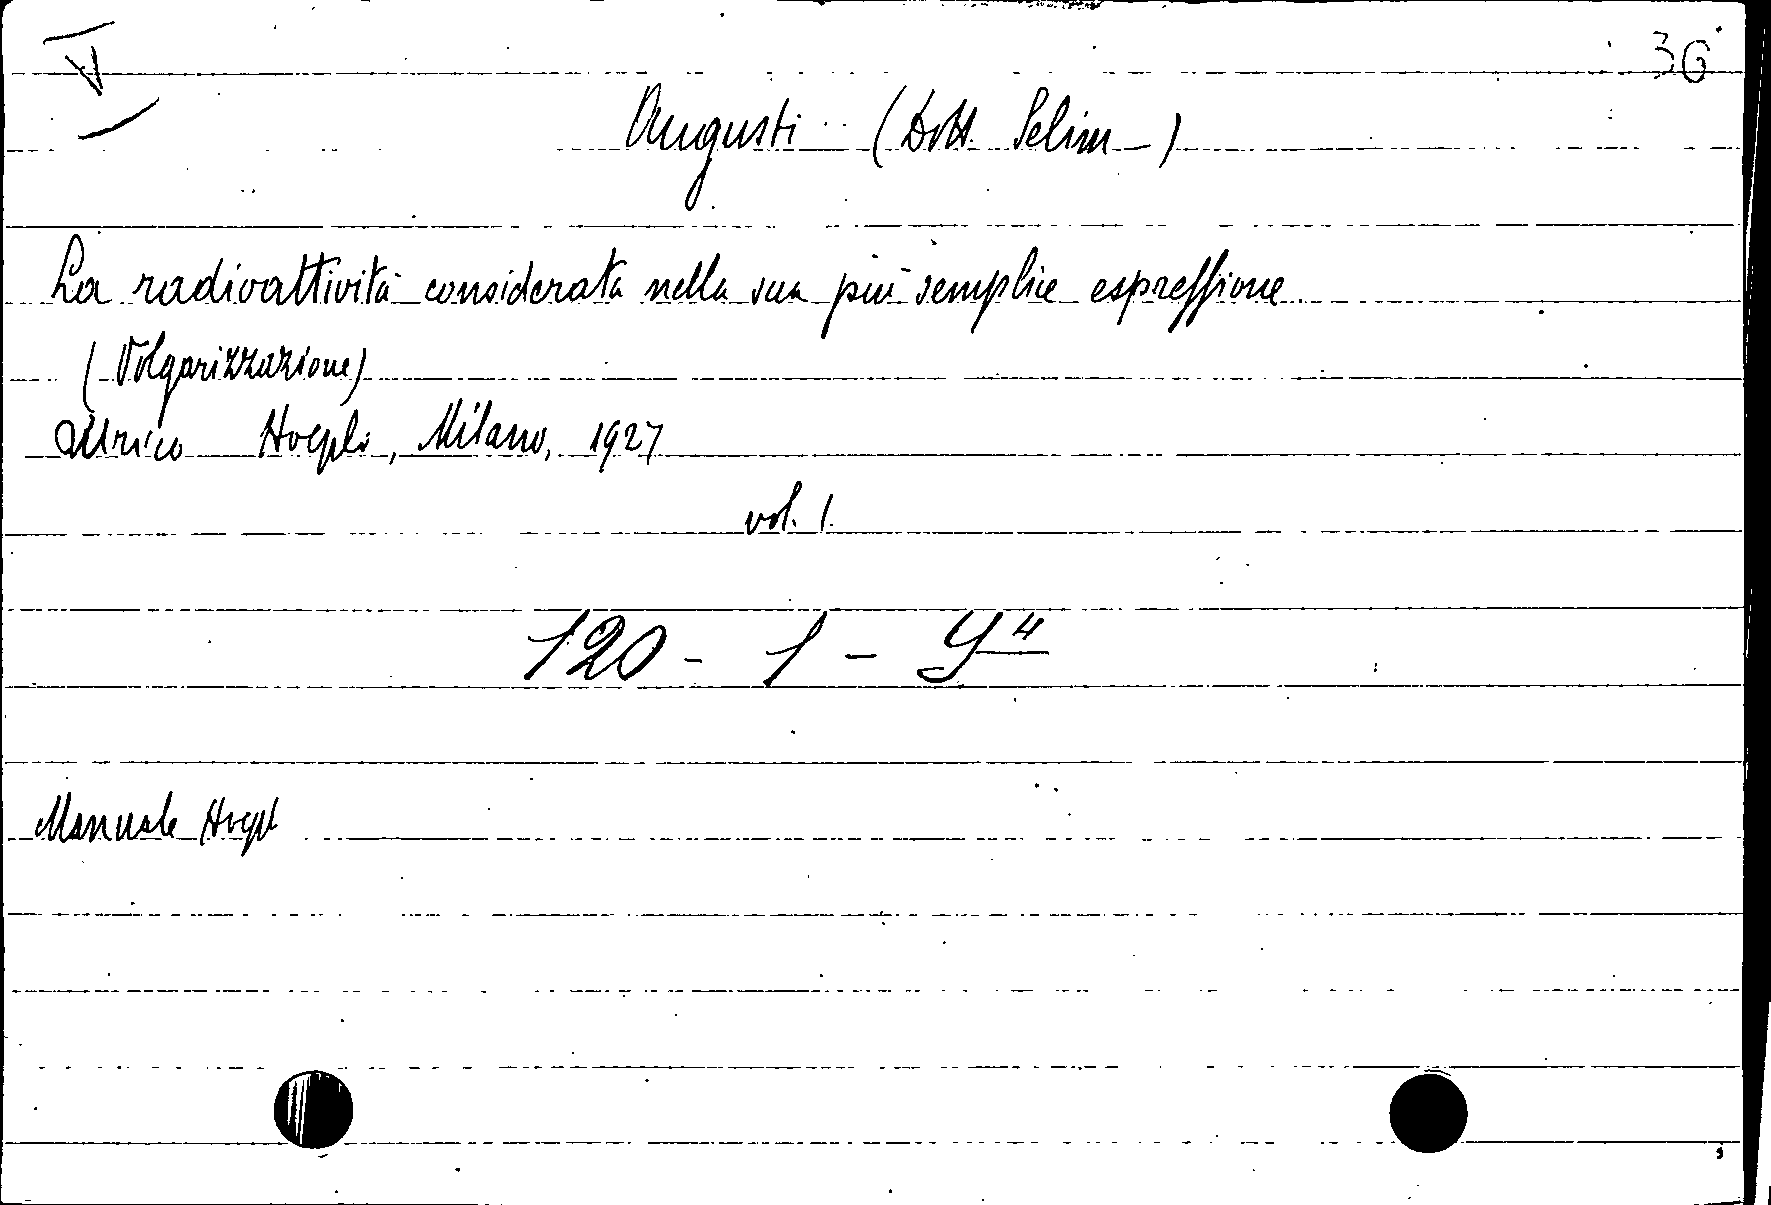 V 36
Augusti (Dott. Selim -)
La radioattività considerata nella sua più semplice espressione
(Volgarizzazione)
Ulrico Hoepli, Milano, 1927
vol. 1.
120 - 1 -
Manuale Hoepl